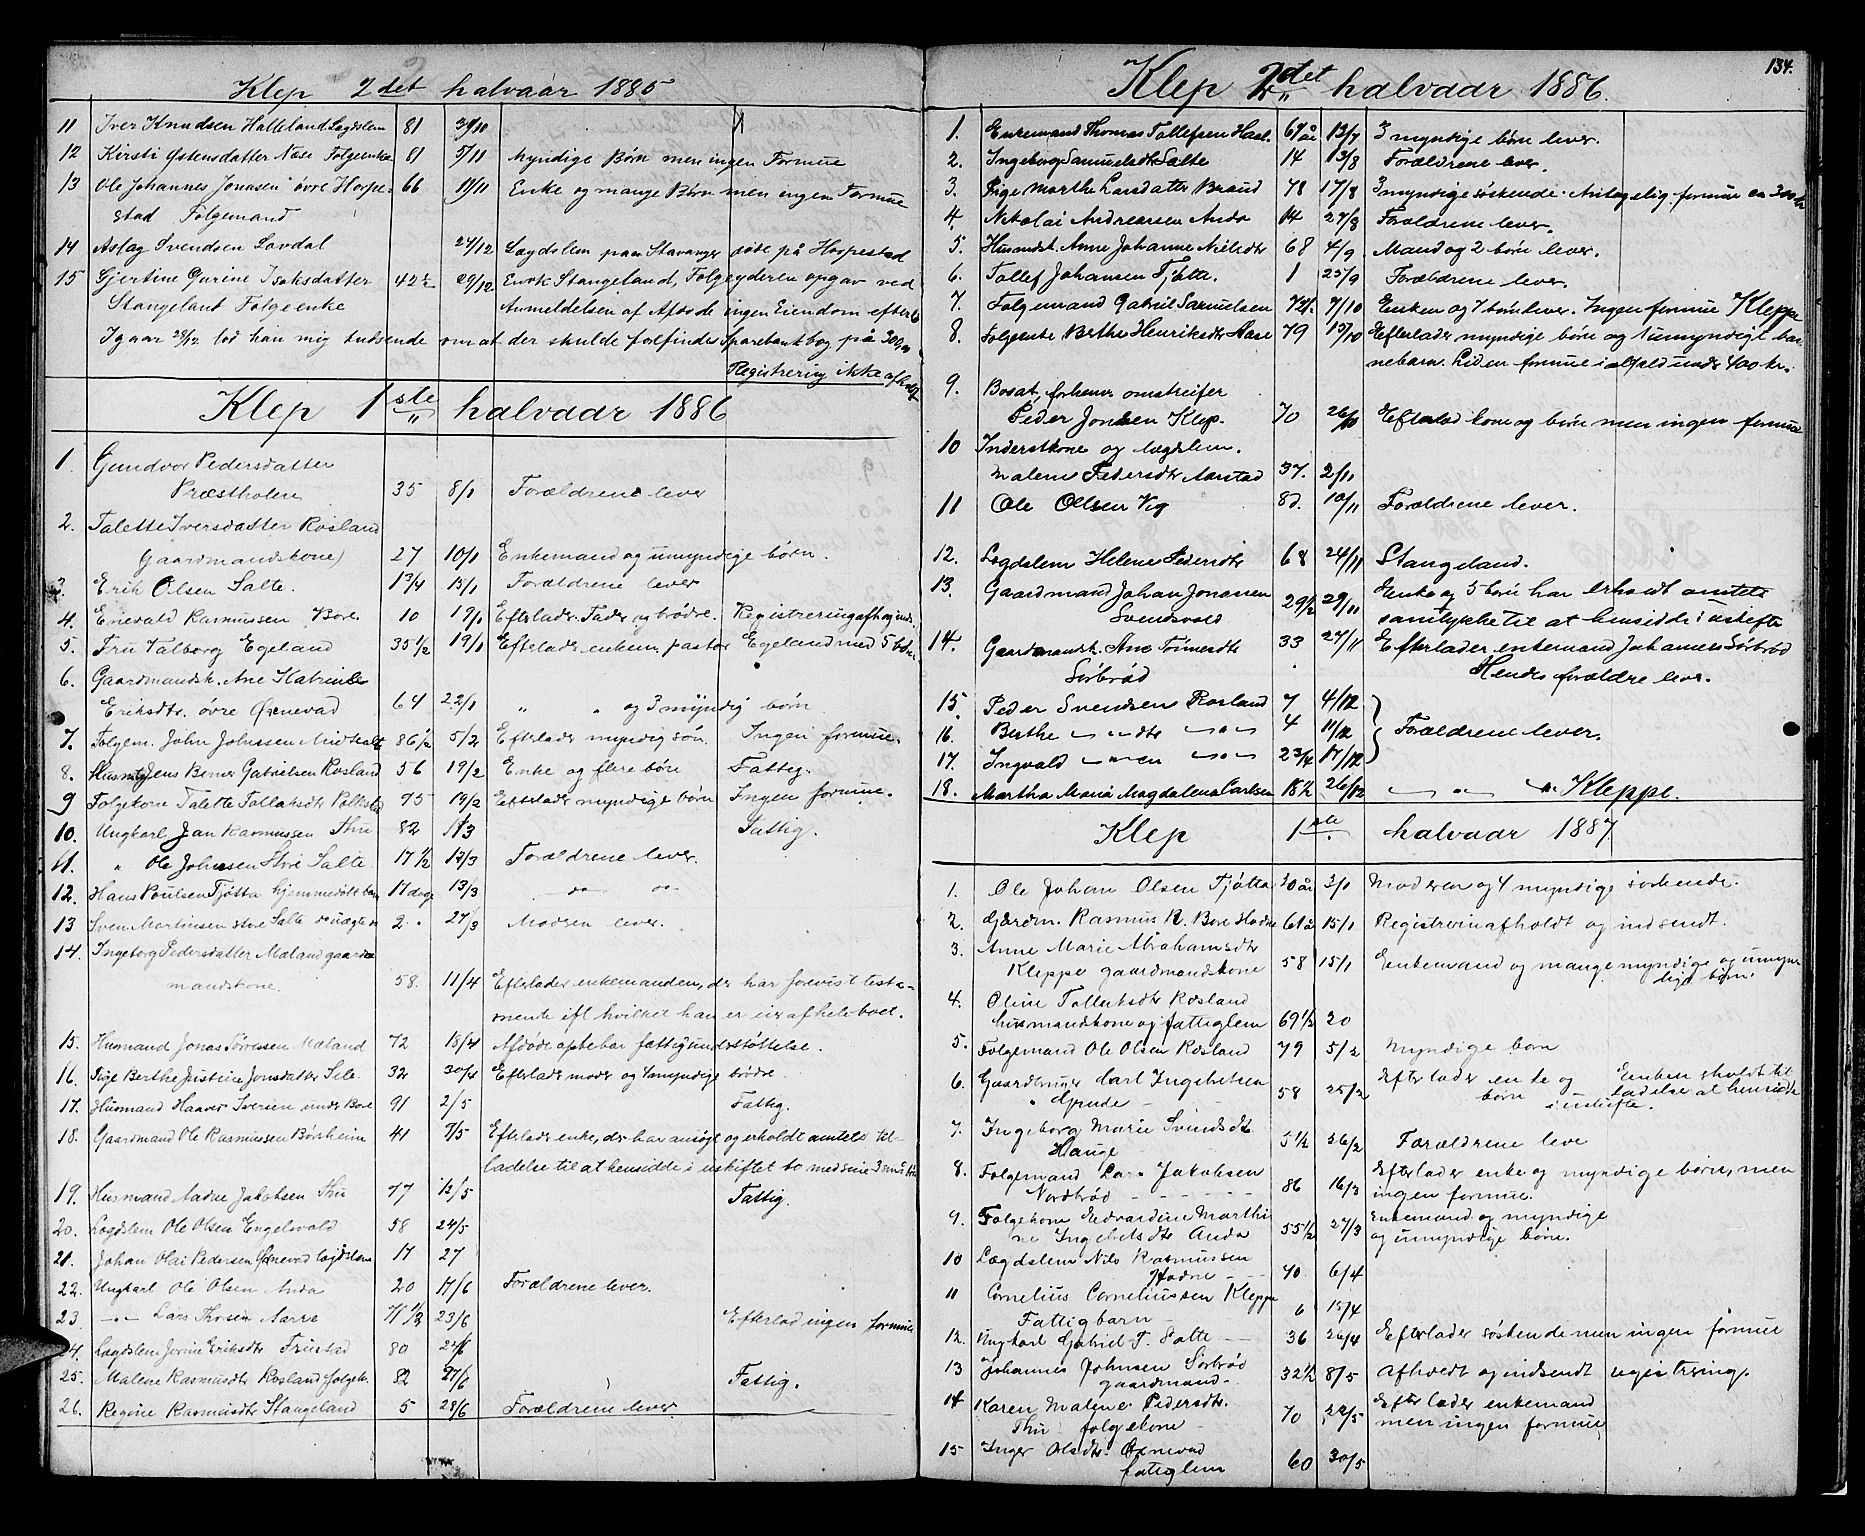 Klep 2det halvaar 1885
11 Iver Knudsen Halleland Lægdslem 81 29/10
12 Kirsti Østensdatter Næse Folgeenke 81 5/11 Myndige Børn men ingen Formue
13 Ole Johannes Jonasen øvre Horpe- 66 19/11 Enke og mange Børn men ingen Formue
stad Folgemand
14 Aslag Svendsen Lovdal 24/12 Lægdslem paa Stavanger døde på Horpestad
15 Gjertine Gurine Isaksdatter 42½ 29/12 Stangeland, Folgeyderen opgav ved
Stangeland Folgeenke Anmeldelsen af Afdøde ingen Eiendom efterlod
Igaar 28/12 lod han mig tilsende om at der skulde forefindes Sparebankbog på 300
Registrering ikke afholdt
Klep 1ste halvaar 1886
1. Gundvor Pedersdatter
Præstholen 35 8/1 Forældrene lever
2. Talette Iversdatter Rosland
Gaardmandskone) 27 10/1 Enkemand og umyndige børn.
3. Erik Olsen Salte. 13/4 15/1 Forældrene lever
4. Enevald Rasmussen Bore 10 17/1 Efterlader Fader og brødre. Registrering afh og inds.
5. Fru Valborg Egeland 35 1/2 19/1 Efterlader enkem. pastor Egeland med 5 børn
6. Gaardmandsk. Ane Katrine
Eriksdtr. øvre Øxnevad 64 22/1 " " og 3 myndig børn
7. Folgem. John Johnsen Midtsalte 86 1/2 5/2 Efterlader myndig søn. Ingen formue.
8. Husmd Jens Berner Gabrielsen Rosland 56 19/2 Enke og flere børn Fattig.
9 Folgekone Talette Tollaksdtr Pollestad 75 19/2 Efterlader myndige børn Ingen formue.
10. Ungkarl Jan Rasmussen Thu 82 1/3 Fattig.
11. " Ole Johnsen Stre Salte 17 1/2 12/3 Forældrene lever.
12. Hans Poulsen Tjøtta hjemmedøbt barn 17 dage 13/3 — do — do
13 Sven Martinsen stre Salte uægte 2 27/3 Moderen lever.
14. Ingeborg Pedersdatter Mæland gaard-
mandskone. 58. 11/4 Efterlader enkemanden, der har forevist testa-
mente ifl hvilket han er eier af hele boet.
15. Husmand Jonas Sørensen Mæland 72 18/4 Afdøde opbebar fattigunderstøttelse.
16. Pige Berthe Justine Jonsdatter Sele 32 30/4 Efterlader moder og 4 myndige brødre.
17. Husmand Haaver Iversen under Bore 91 2/5 Fattig.
18. Gaardmand Ole Rasmussen Børsheim 41 7/5 Efterlader enke, der har ansøgt og erholdt amtets til-
ladelse til at hensidde i uskiftet bo med sine 3 små børn
19. Husmand Aadne Jakobsen Thu 77 12/5 Fattig.
20. Lægdslem Ole Olsen Engelsvold 58 24/5
21. Johan Olai Pedersen Øxnevad Lægdslem 17 27
22. Ungkarl Ole Olsen Anda 20 17/6 Forældrene lever.
23. —"— Lars Thorsen Aarre 71 1/3 23/6 Efterlod ingen formue
24. Lægdslem Jorine Eriksdtr Friestad 80 24/6
25. Malene Rasmusdtr Rosland Folgek. 82 27/6 Fattig.
26. Regine Rasmusdtr Stangeland 5 28/6 Forældrene lever.
134.
Klep 2det halvaar 1886.
1. Enkemand Thomas Tollefsen Haal. 67 år 13/7 3 myndige børn lever.
2. Ingeborg Samuelsdtr Salte 14 13/8 Forældrene lever.
3. Pige Marthe Larsdatter Braud 78 17/8 3 myndige søskende. Antagelig formue ca 300 kr
4. Nikolai Andreassen Anda 14 27/8 Forældrene lever.
5. Husmdsk. Anne Johanne Nilsdtr 68 4/9 Mand og 2 børn lever.
6. Tollef Johansen Tjøtta. 1 25/9 Forældrene lever.
7. Folgemand Gabriel Samuelsen 72 7/10 Enken og 7 børn lever. Ingen formue Kleppe
8. Folgeenke Berthe Henriksdtr Aase 79 15/10 Efterlader myndige børn og 1 umyndigt bar-
nebarn. Liden formue i alfald under 400 kr.
9. Bosat, forhenv omstreifer
Peder Jonsen Klep. 70 26/10 Efterlod kone og børn men ingen formue
10 Inderstkone og lægdslem.
Malene Pedersdtr Aarstad 37. 2/11
11 Ole Olsen Vig 8 d. 10/11 Forældrene lever.
12. Lægdslem Helene Pedersdtr 68 24/11 Stangeland.
13. Gaardmand Johan Jonassen
Svendsvold 29 1/2 29/11 Enke og 5 børn har erholdt amtets
samtykke til at hensidde i uskifte
14. Gaardmandsk. Ane Tønnesdtr 33 27/11 Efterlader enkemand Johannes Sørbrød
Sørbrød Hendes forældre lever.
15. Peder Svendsen Rosland 7 4/12
16. Berthe —"— dtr —"— 4 11/12 Forældrene lever.
17. Ingvald —"— en —"— 2 3/4 17/12
18. Martha Maria Magdalena Carlsen 18 1/2 26/12 —"— —"— Kleppe.
Klep 1ste halvaar 1887
1. Ole Johan Olsen Tjøtta 30 år 3/1 Moderen og 4 myndige søskende.
2. Gårdm. Rasmus R. Bore Hodne 61 år 15/1 Registrerin afholdt og indsendt.
3. Anne Marie Abrahamsdtr
Kleppe gaardmandskone 58 15/1 Enkemand og mange myndige og umyn-
dige børn.
4. Oline Tollaksdtr Rosland
husmandskone og fattiglem 69 1/2 20
5. Folgemand Ole Olsen Rosland 79 5/2 Myndige børn
6. Gaardbruger Carl Ingebretsen 58 25/2 Efterlader enke og børn Enken erholdt til-
Grude ladelse at hensidde i uskifte.
7. Ingeborg Marie Svendsdtr
Hauge 5 1/2 26/2 Forældrene leve
8. Folgemand Lars Jakobsen
Nordbrød 86 16/3 Efterlader enke og myndige børn, men
ingen formue.
9. Folgekone Edvardine Marthi-
ne Ingebretsdtr Anda 55 1/2 27/3 Enkemand og myndige
og umyndige børn.
10 Lægdslem Nils Rasmussen
Hodne 70 6/4
11 Cornelius Corneliussen Kleppe
Fattigbarn 6 15/4
12. Ungkarl Gabriel T. Salte 36 26/4 Efterlader søskende men ingen formue
13 Johannes Johnsen Sørbrød
gaardmand 32 1/2 8/5 Afholdt og indsendt registrering.
14 Karen Malene Pedersdtr.
Thu folgekone 70 22/5 Efterlader enkemand
men ingen formue
15 Inger Olsdtr. Øxnevad
fattiglem 60 30/5